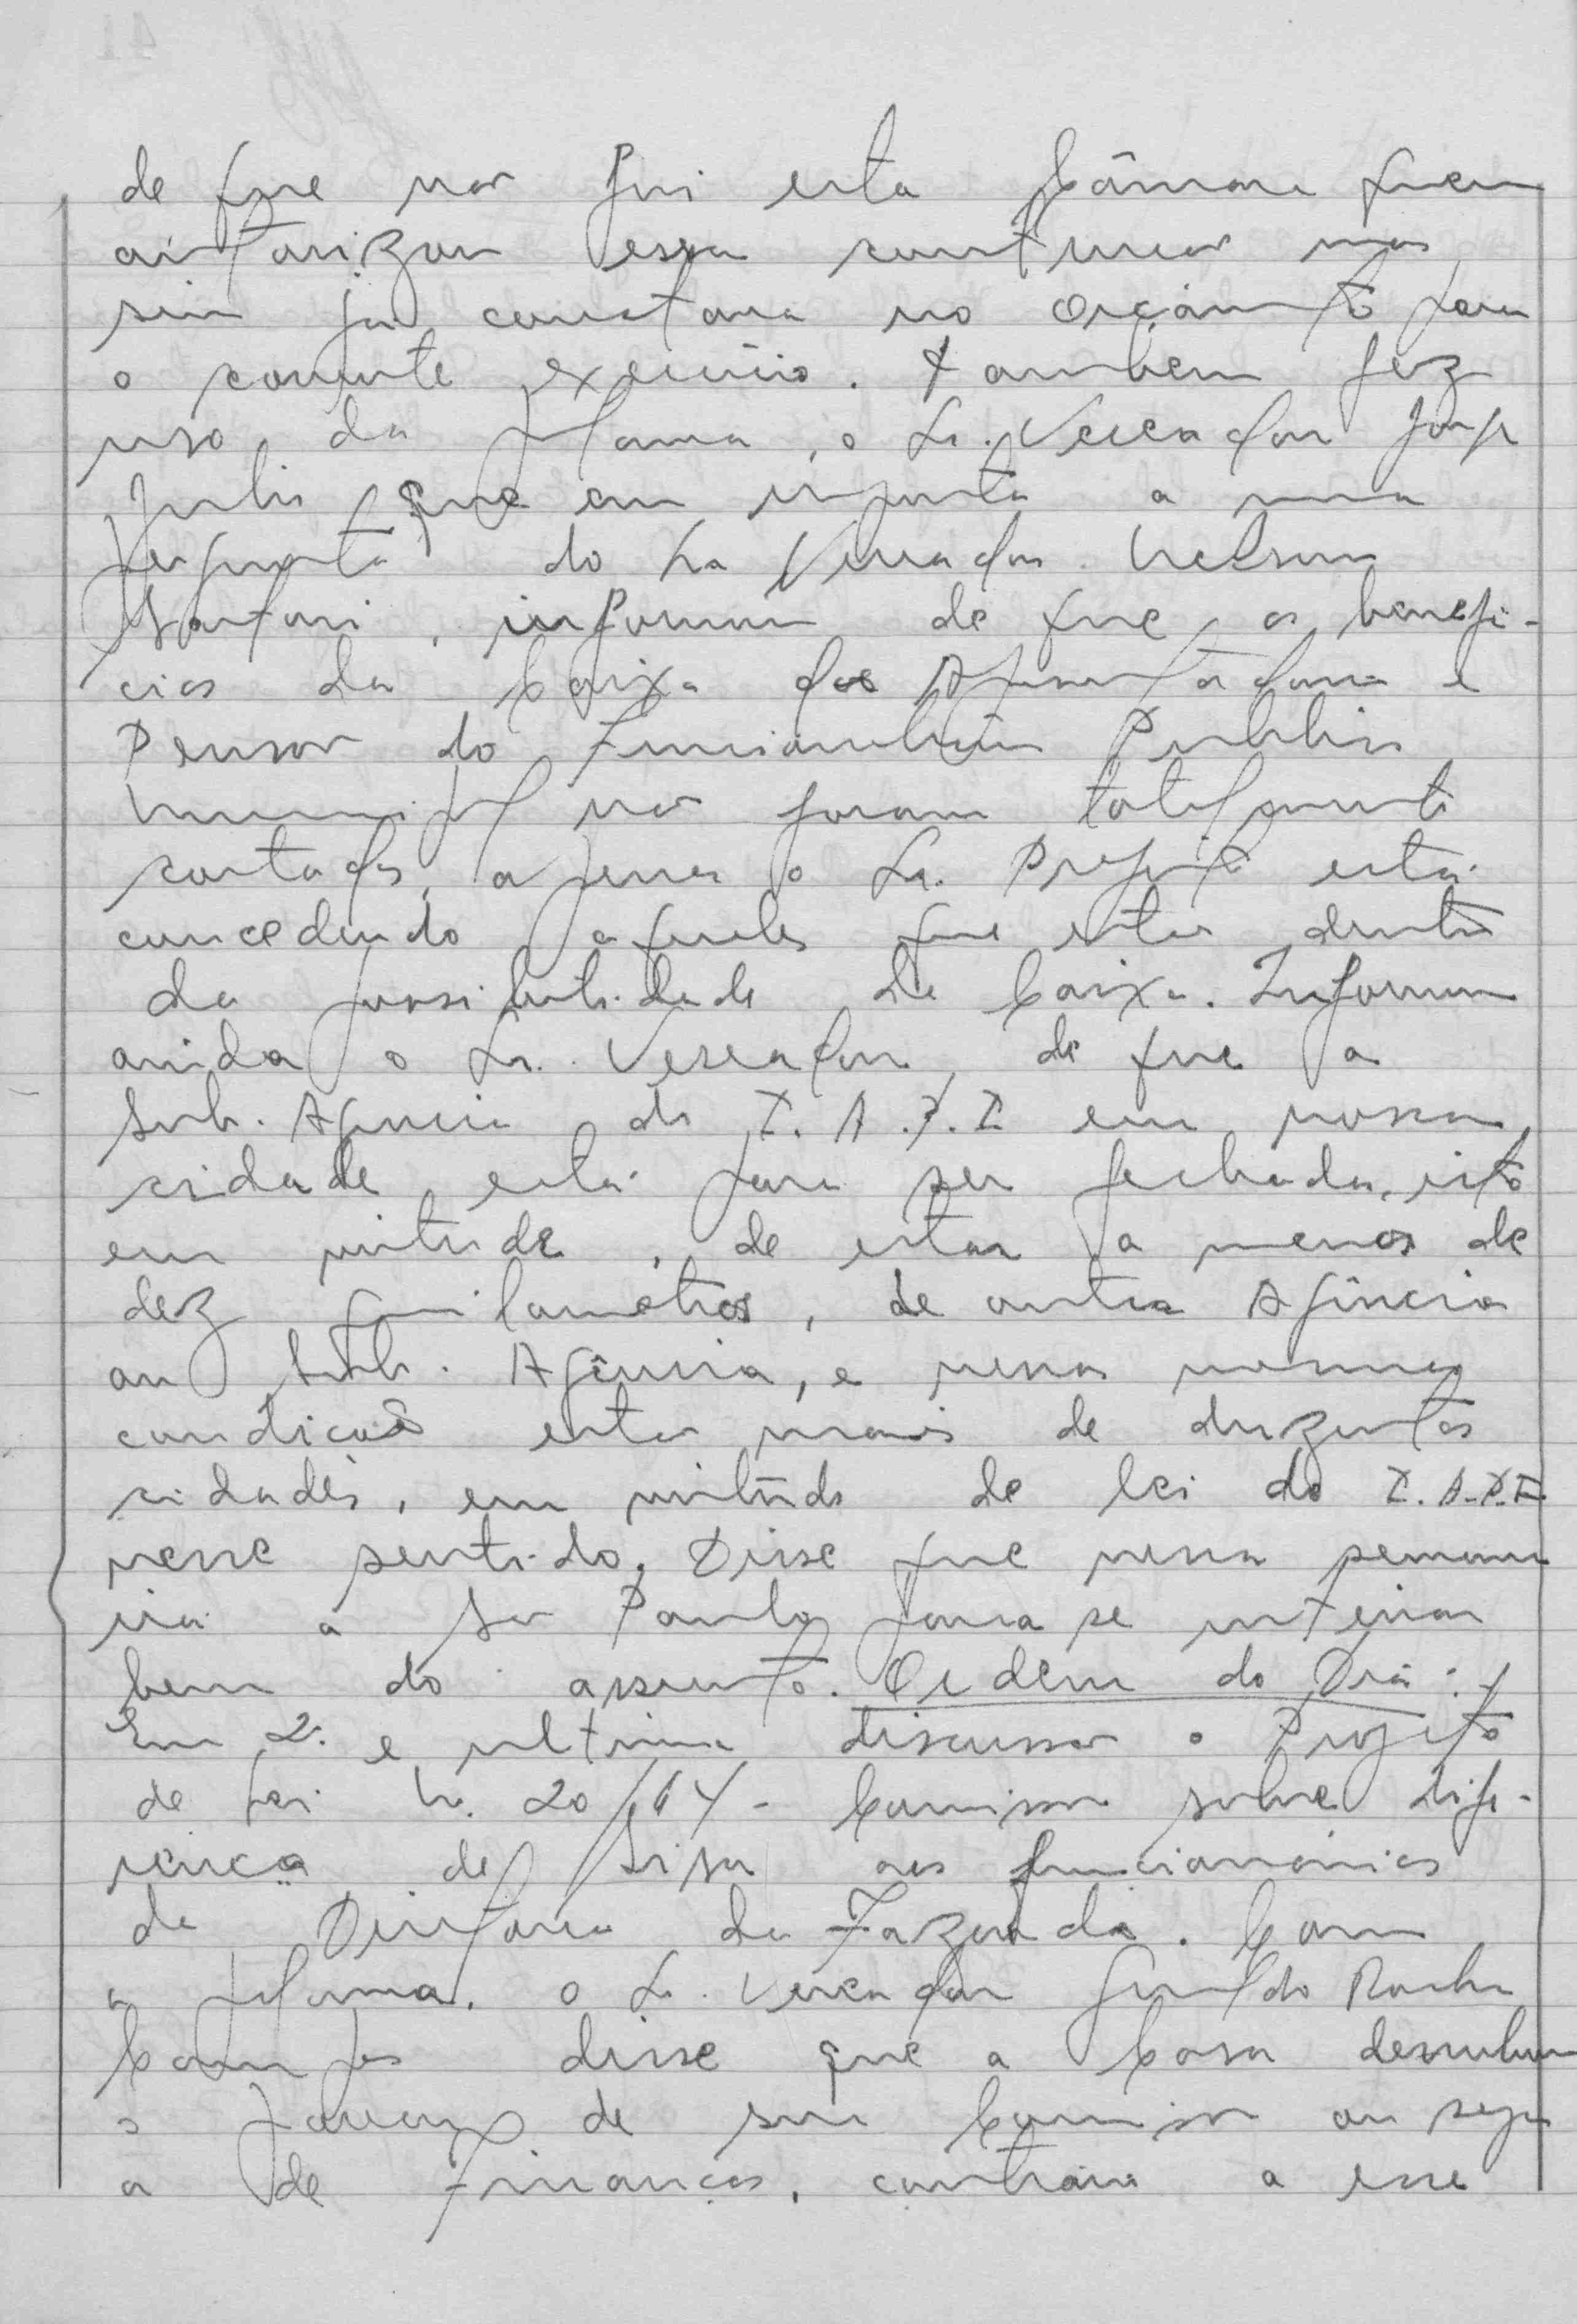 de que não foi esta Câmara quem
autorizou essa contrução mas
sim já constava no Orçamento para
o corrente exercicio. Também fez
uso da palavra, o Sr. Vereador José
Julio que em resposta a uma
pergunta do Sr Vereador Nelson
informou de que, os benefi-
cios da Caixa de Aposentadoria e
Pensão do Funcionalismo Publico
Municipal não foram totalmente
cortados, apenas o Sr. Prefeito está
concedendo aqueles que estão dentro
da possibilidade da Caixa. Informou
ainda o Sr. Vereador, de que a
Sub. Agencia do I.A.P.I em nossa
cidade, está para ser fechada, isto
em virtude, de estar a menos de
dez quilometros, de outra Agência
ou Sub. Agência, e nessas mesmas
condições estão mais de duzentas
cidades, em virtude de lei do I.A.P.I.
nesse sentido. Disse que nessa semana
iria a São Paulo para se inteirar
bem do assunto. Ordem do Dia:
Em 2. e ultima discussão o Projeto
de Lei N. 20/64 - Comissão sobre dife-
rença de Sisa aos funcionários
da Diretoria da Fazenda. Com
a palavra, o Sr. Vereador Geraldo Rocha
Campos disse que a Casa derrubou
o parecer de sua Comissão ou seja
a de Finanças, contrário a esse